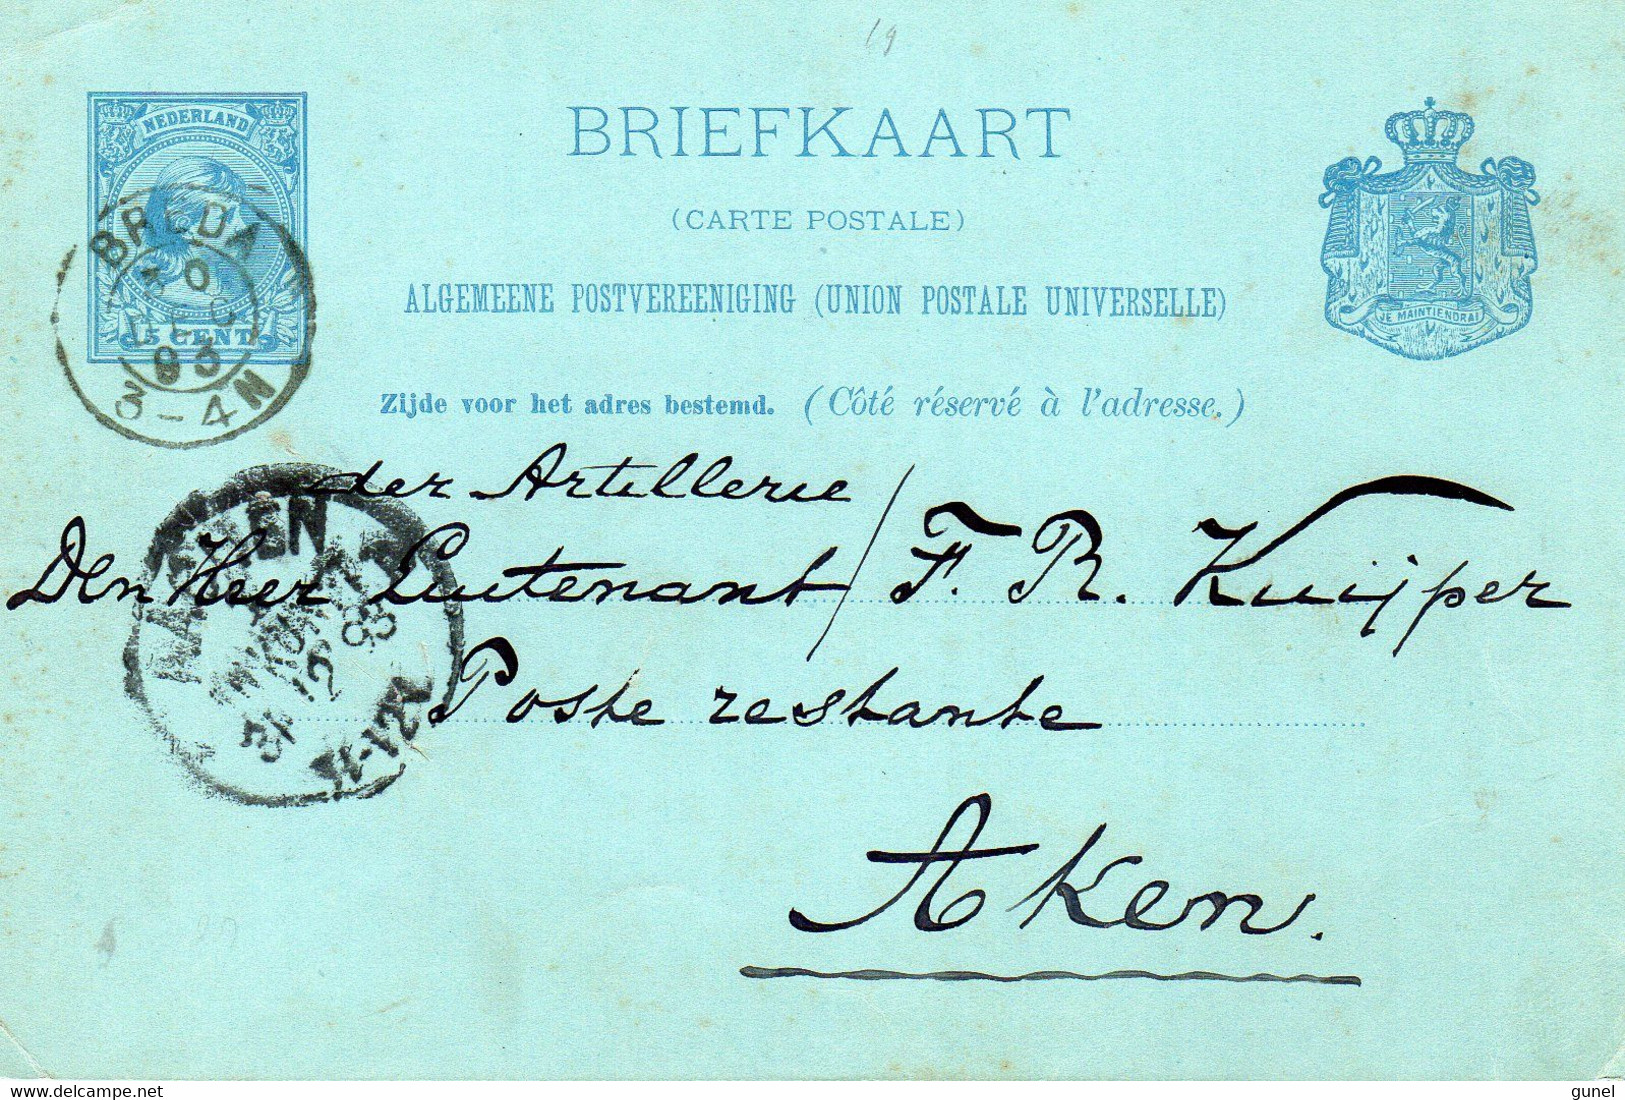 19
NEDERLAND
5 CENT
BREDA
DEC
93
3-4N
BRIEFKAART
(CARTE POSTALE)
ALGEMEENE POSTVEREENIGING (UNION POSTALE UNIVERSELLE)
JE MAINTIENDRAI
Zijde voor het adres bestemd. (Côté réservé à l'adresse.)
der Artillerie
Den Heer Luitenant / F. R. Kuijper
Poste restante
Aken.
AACHEN
31 12 93
11-12V
delcampe.net
gunel